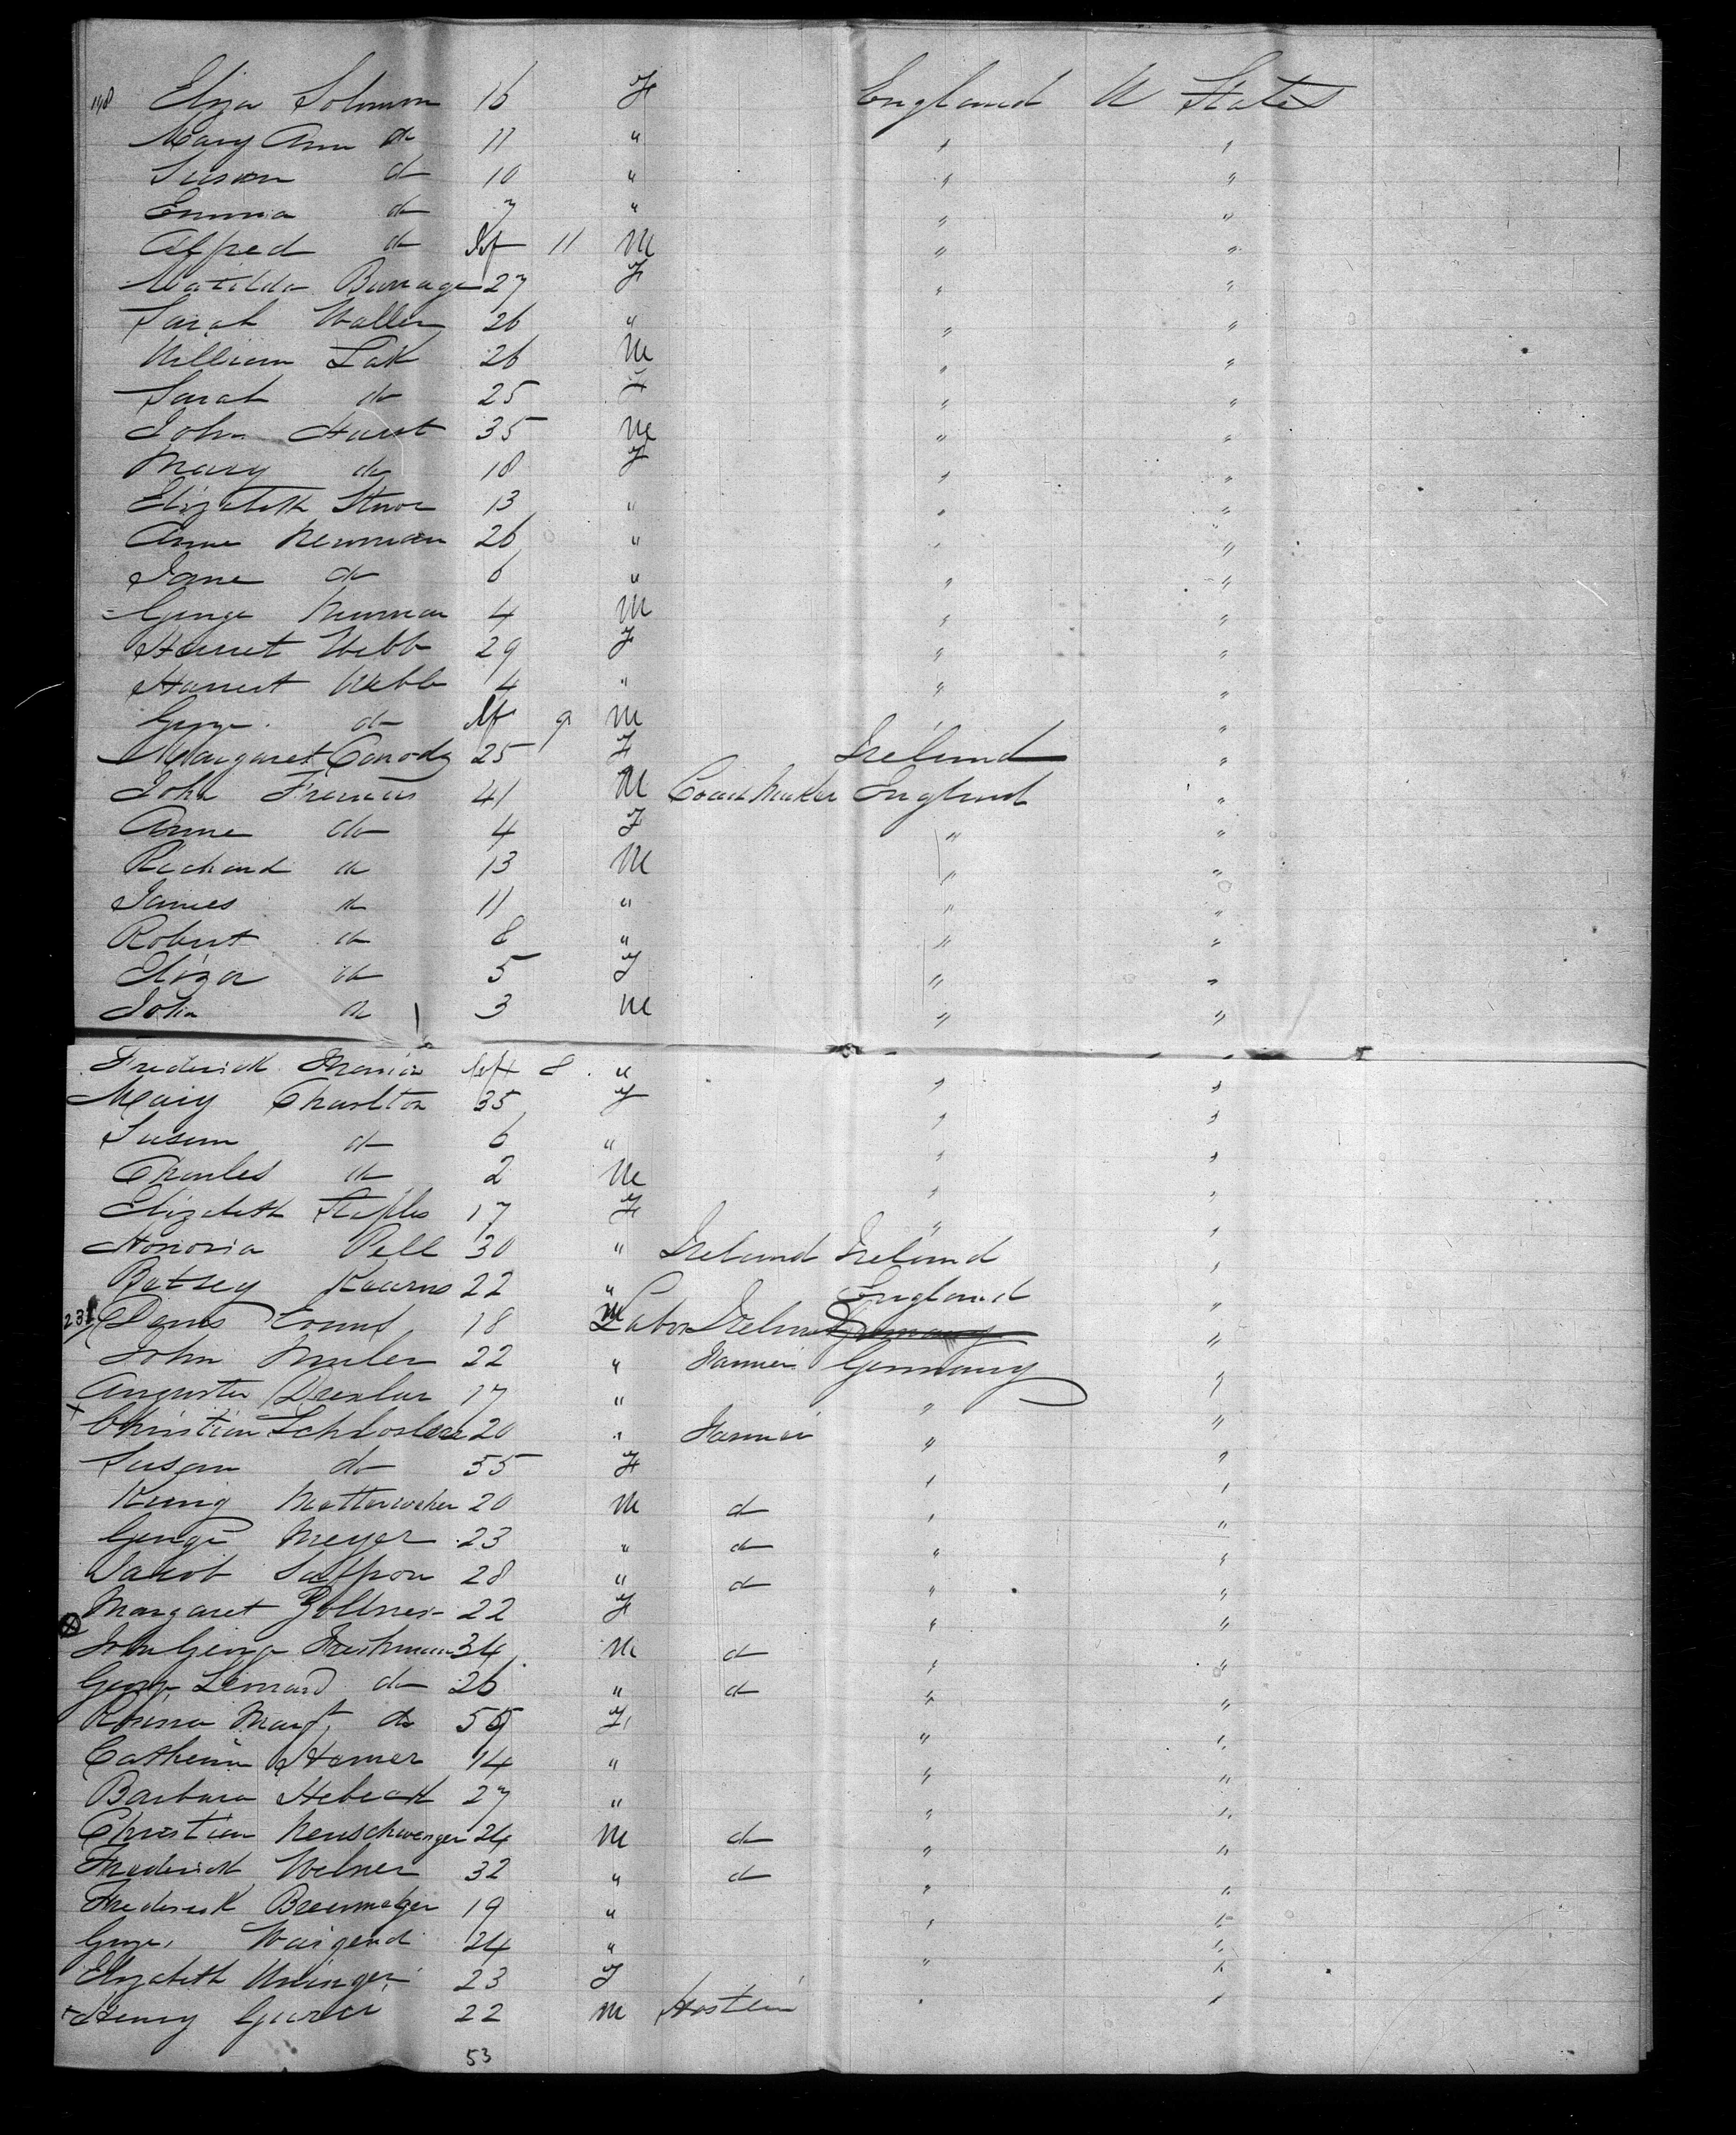 198 Eliza Solomon 16 F England U States
Mary Ann do 11 " " "
Susan do 10 " " "
Emma do 7 " " "
Alfred do Inf 11 M " "
Matilda Burrage 27 F " "
Sarah Waller 26 " " "
William Lak 26 M " "
Sarah do 25 F " "
John Hurst 35 M " "
Mary do 18 F " "
Elizabeth 13 " " "
Anne Newman 26 " " "
Jane do 6 " " "
George Newman 4 M " "
Harriet Webb 29 F " "
Harriet Webb 4 " " "
George do Inf 9 M " "
Margaret Conody 25 F Ireland "
John Francis 41 M Coach Maker England "
Anne do 4 F " "
Richard do 13 M " "
James do 11 " " "
Robert do 8 " " "
Eliza do 5 F " "
John do 3 M " "
Frederick Francis Inft 8 " " "
Mary Charlton 35 F " "
Susan do 6 " " "
Charles do 2 M " "
Elizabeth Staples 17 F " "
Honoria Pell 30 " Ireland Ireland "
Betsey Kearns 22 " England "
231 Denis 18 M Labor Ireland Germany "
John Muller 22 " Farmer Germany "
Augusta 17 " " "
Christian 20 " Farmer " "
Susan do 55 F " "
20 M do " "
George Meyer 23 " do " "
Jakob 28 " do " "
Margaret Zollner 22 F " "
John George 34 M do " "
George Leonard do 26 " do " "
Rosina Margt do 55 F " "
Catherine Hamer 14 " " "
Barbara 27 " " "
Christian Neuschwenger 24 M do " "
Frederick Welner 32 " do " "
Frederick 19 " " "
George 24 " " "
Elizabeth 23 F " "
Henry 22 M " "
53